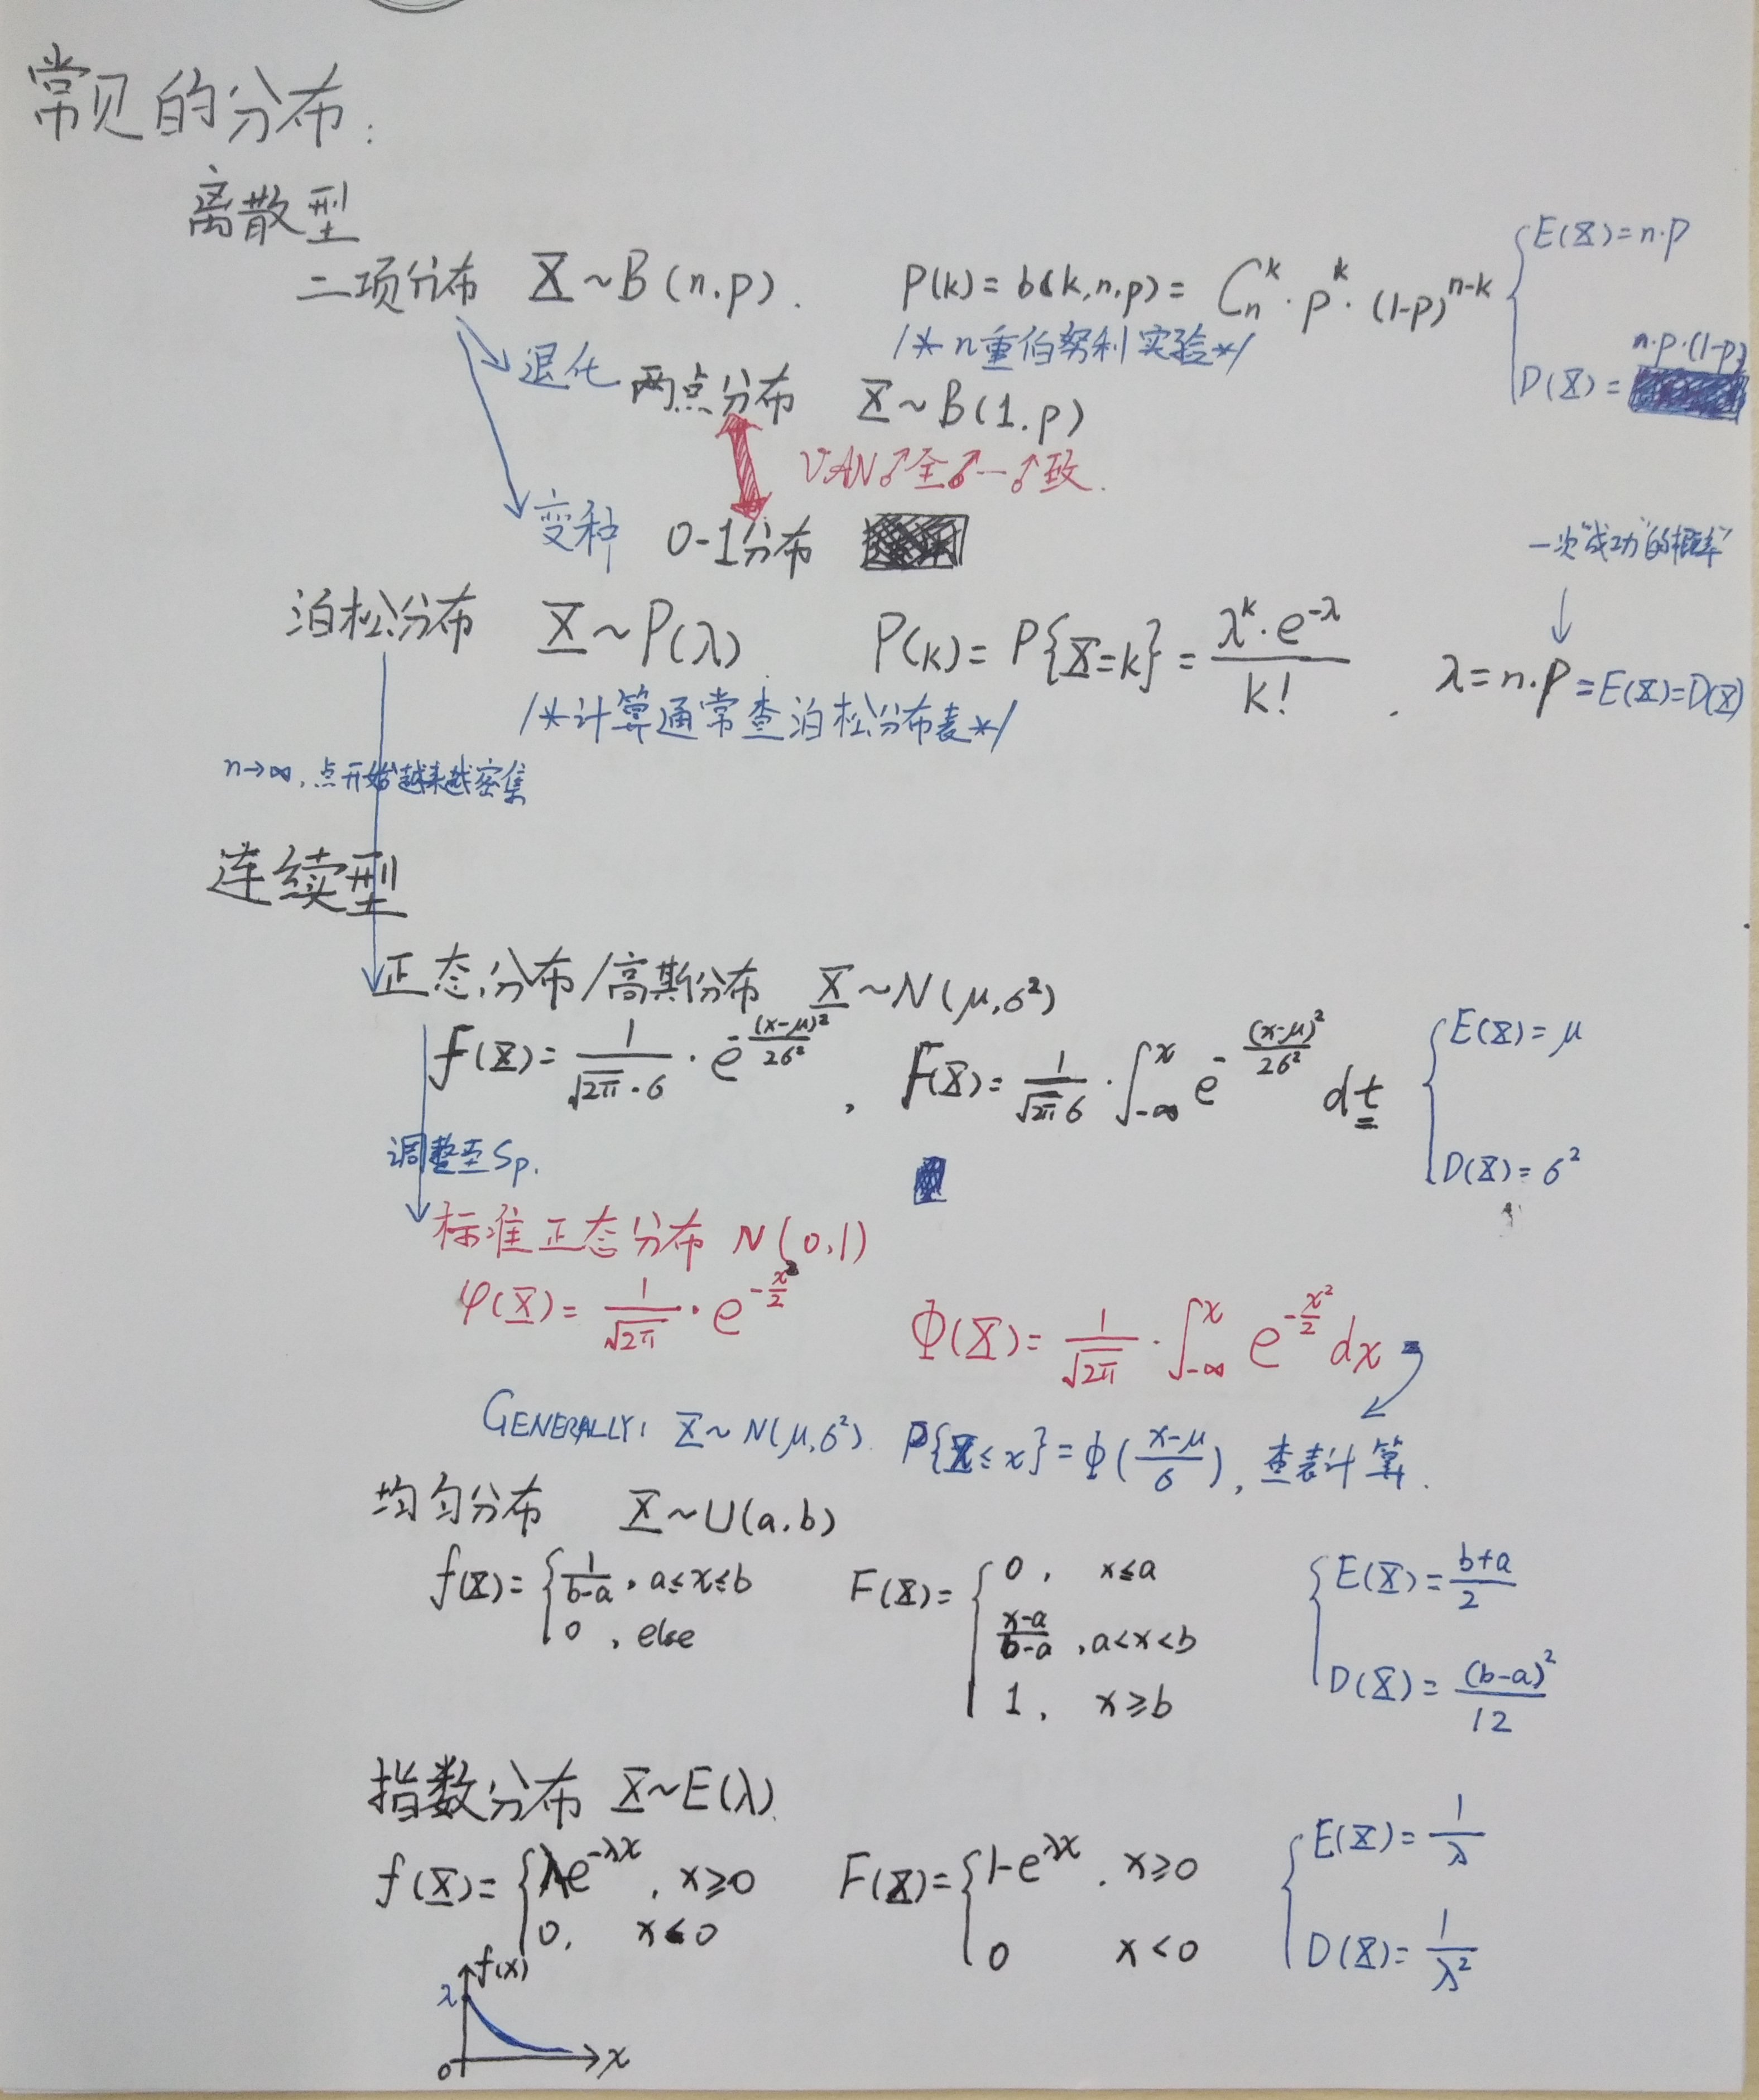 常见的分布:
离散型
二项分布 X~B(n.p). P(k)=b(k,n,p)=C_n^k·p^k·(1-p)^{n-k} { E(X)=n·p
/*n重伯努利实验*/
D(X)= n·p·(1-p)
退化 两点分布 X~B(1.p)
VAN♂全♂一♂致.
变种 0-1分布
一次"成功"的概率
泊松分布 X~P(λ) P(k)=P{X=k}=\frac{λ^k·e^{-λ}}{k!}. λ=n·p=E(X)=D(X)
/*计算通常查泊松分布表*/
n→∞,点开始越来越密集
连续型
正态分布/高斯分布 X~N(μ,σ²)
f(X)=\frac{1}{\sqrt{2π}·σ}·e^{-\frac{(x-μ)^2}{2σ^2}}, F(X)=\frac{1}{\sqrt{2π}σ}·∫_{-∞}^{x} e^{-\frac{(x-μ)^2}{2σ^2}} dt { E(X)=μ
D(X)=σ²
调整至Sp.
标准正态分布 N(0,1)
φ(X)=\frac{1}{\sqrt{2π}}·e^{-\frac{x^2}{2}} Φ(X)=\frac{1}{\sqrt{2π}}·∫_{-∞}^{x} e^{-\frac{x^2}{2}}dx
GENERALLY: X~N(μ,σ²). P{X≤x}=Φ(\frac{x-μ}{σ}),查表计算.
均匀分布 X~U(a.b)
f(X)={ \frac{1}{b-a}, a≤x≤b
0, else
F(X)={ 0, x≤a
\frac{x-a}{b-a}, a<x<b
1, x≥b
{ E(X)=\frac{b+a}{2}
D(X)=\frac{(b-a)^2}{12}
指数分布 X~E(λ).
f(X)={ λe^{-λx}, x≥0
0, x<0
F(X)={ 1-e^{λx}. x≥0
0 x<0
{ E(X)=\frac{1}{λ}
D(X)=\frac{1}{λ^2}
f(x)
λ
0
x